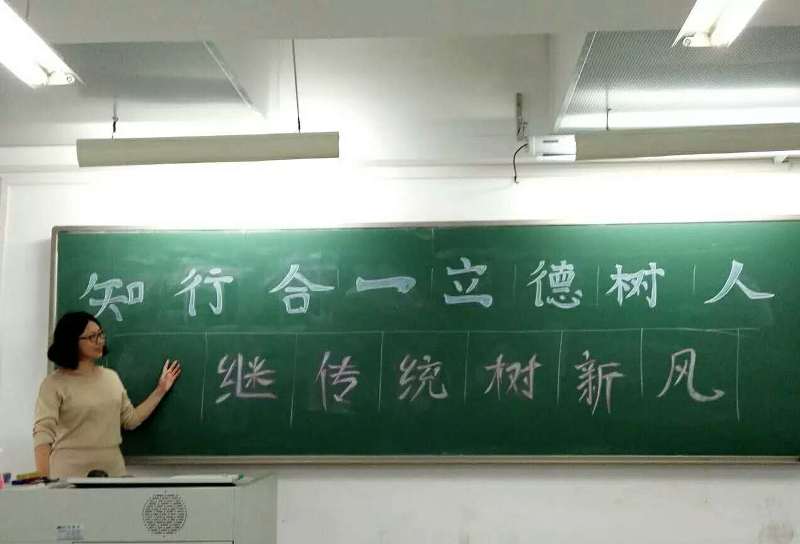 知行合一立德树人
继传统树新风